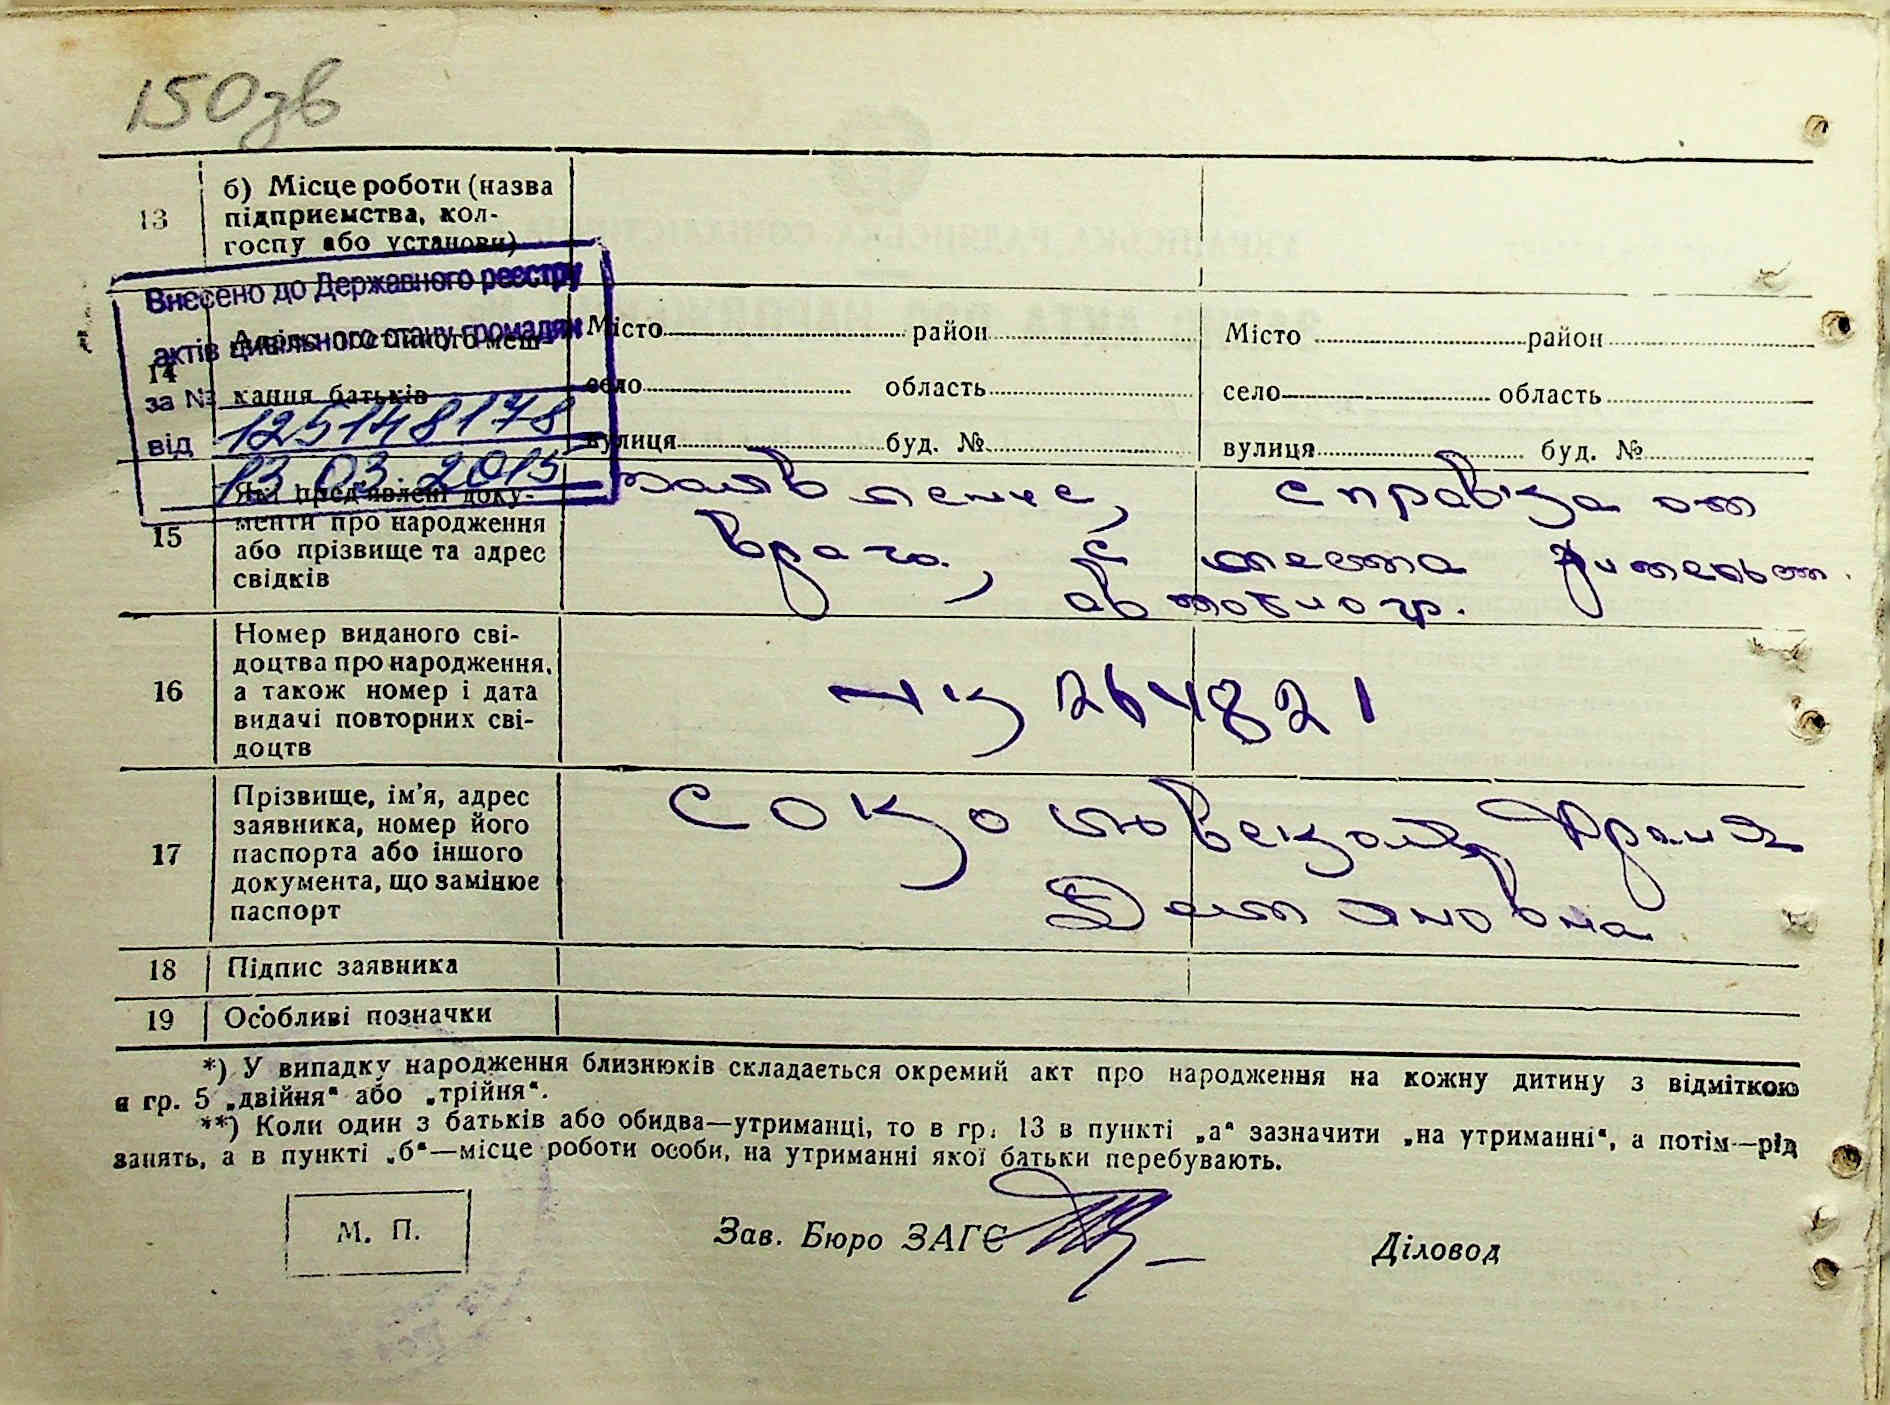 150 зв
13
б) Місце роботи (назва
підприємства, кол-
госпу або установи)
Внесено до Державного реєстру
актів цивільного стану громадян
за № 125148178
від 13.03.2015
14
кання батьків
Місто район
село область
вулиця буд. №
Місто район
село область
вулиця буд. №
15
Які пред'явлені доку-
менти про народження
або прізвище та адрес
свідків
справка от
врача, с места жительст.
автобиогр.
16
Номер виданого сві-
доцтва про народження,
а також номер і дата
видачі повторних сві-
доцтв
264821
17
Прізвище, ім'я, адрес
заявника, номер його
паспорта або іншого
документа, що замінює
паспорт
18
Підпис заявника
19
Особливі позначки
*) У випадку народження близнюків складається окремий акт про народження на кожну дитину з відміткою
в гр. 5 „двійня“ або „трійня“.
**) Коли один з батьків або обидва—утриманці, то в гр. 13 в пункті „а“ зазначити „на утриманні“, а потім—рід
занять, а в пункті „б“—місце роботи особи, на утриманні якої батьки перебувають.
М. П.
Зав. Бюро ЗАГС
Діловод